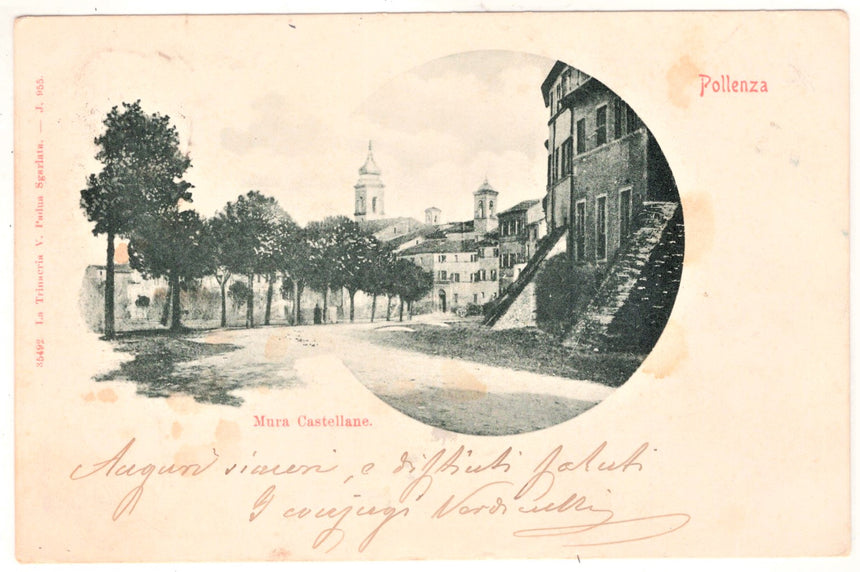 Pollenza
35492 La Trinacria V. Padua Sgarlata. — J. 955.
Mura Castellane.
Auguri sinceri, e distinti saluti
I conjugi